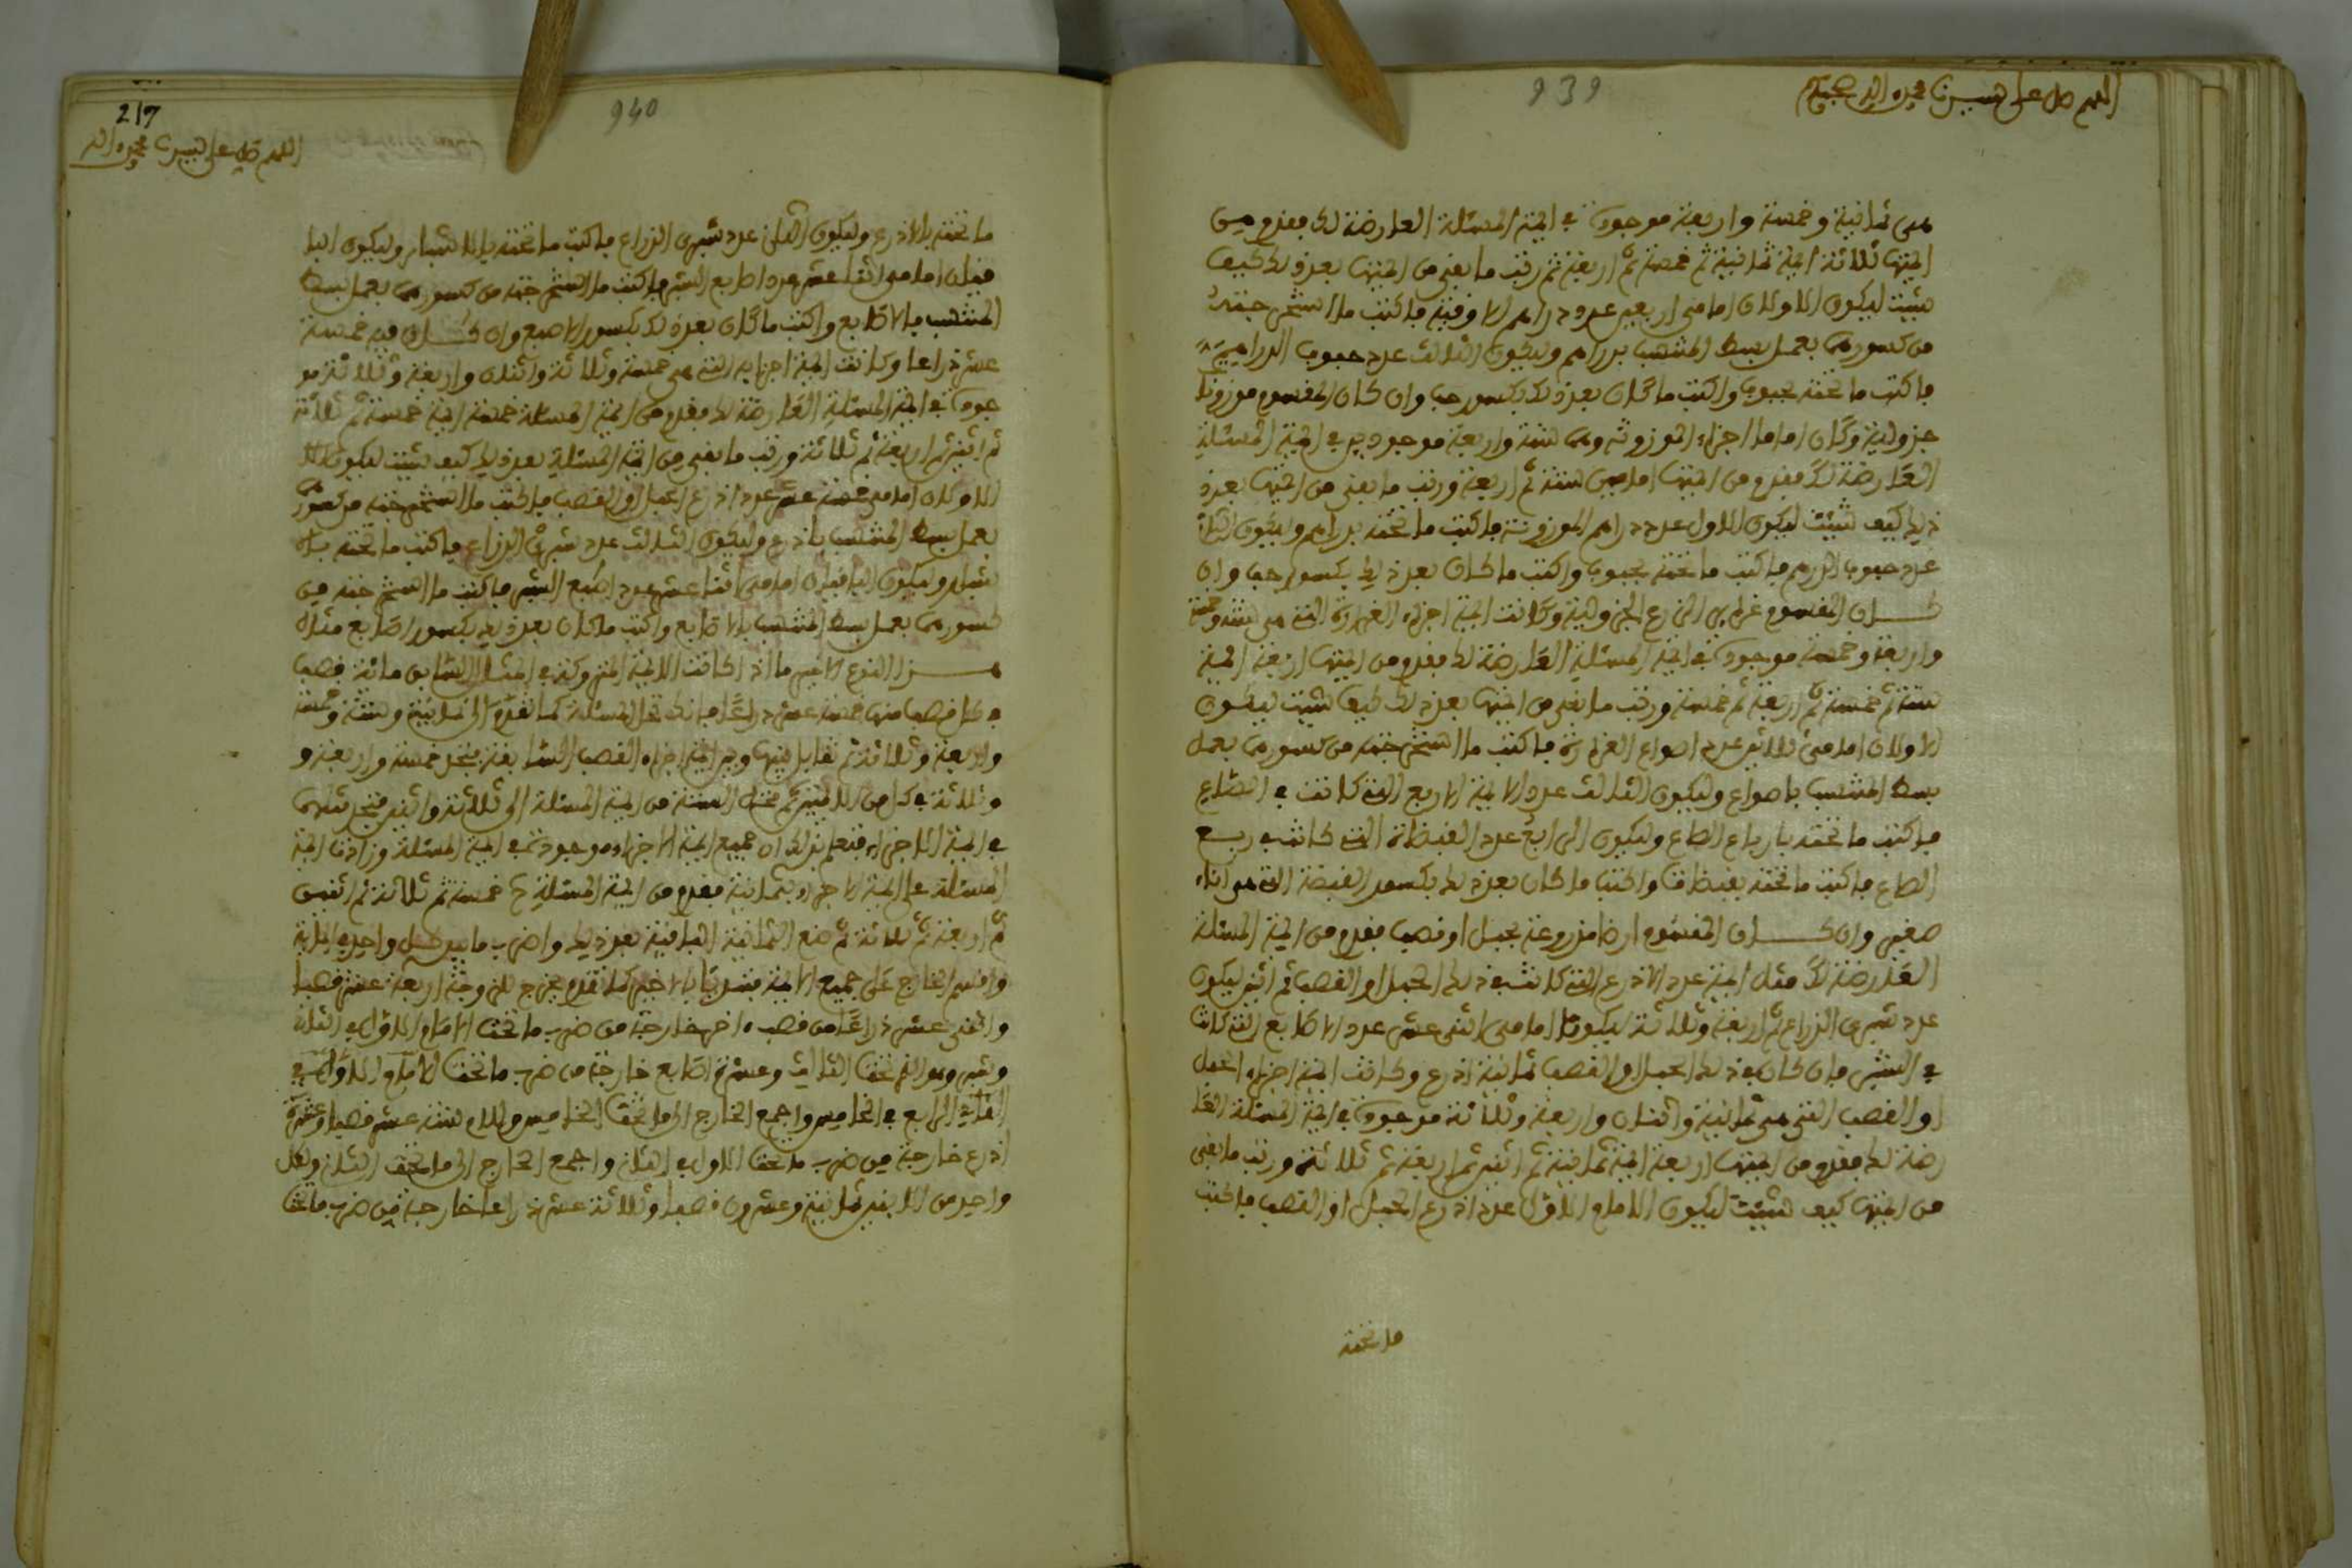 939
اللهم صل على سيدنا محمد واله وصحبه وسلم
هى ثمانية وخمسة واربعة موجودة في ايمة المسئلة العارضة لك فقدم من
ايمتها ثلاثة ايمة ثمانية ثم خمسة ثم اربعة ثم رتب ما بقى من ايمتها بعد ذلك كيف
شيت ليكون الاولان امامى اربعين عدد دراهم الاوقية فاكتب ما استخرجته
من كسورهما بعمل بسط المنتسب بدراهم وليكون الثالث عدد حبوب الدراهم
فاكتب ما تحته بحبوب واكتب ما كان بعد ذلك بكسور حب وان كان المقسوم موزونا
جزولية وكان اماما اجزاء الموزونة وهما ستة واربعة موجودين في ايمة المسئلة
العارضة لك فقدم من ايمتها امامين ستة ثم اربعة ورتب ما بقى من ايمتها بعد
ذلك كيف شيت ليكون الاول عدد دراهم الموزونة فاكتب ما تحته بدراهم وليكون الثانى
عدد حبوب الدرهم فاكتب ما تحته بحبوب واكتب ما كان بعد ذلك بكسور حب وان
كان المقسوم غرايس الزرع الجزولية وكانت ايمة اجزاء الغرارة التى هى ستة وخمسة
واربعة وخمسة موجودة في ايمة المسئلة العارضة لك فقدم من ايمتها اربعة ايمة
ستة ثم خمسة ثم اربعة ثم خمسة ورتب ما بقى من ايمتها بعد ذلك كيف شيت ليكون
الاولان امامى ثلاثين عدد اصواع الغرارة فاكتب ما استخرجته من كسورهما بعمل
بسط المنتسب باصواع وليكون الثالث عدد الايمة الاربع التى كانت في الصاع
فاكتب ما تحته بارباع الصاع وليكون الرابع عدد القبضات التى كانت في ربع
الصاع فاكتب ما تحته بقبضات واكتب ما كان بعد ذلك بكسور القبضة التى هى اناء
صغير وان كان المقسوم ارضا مزروعة بحبل او قصب فقدم من ايمة المسئلة
العارضة لك مثل ايمة عدد الاذرع التى كانت في ذلك الحبل او القصب ثم اثنين ليكون
عدد شبرى الذراع ثم اربعة وثلاثة ليكونا امامى اثنى عشر عدد الاصابع التى كانت
في الشبر فان كان في ذلك الحبل او القصب ثمانية اذرع وكانت ايمة اجزاء الحبل
او القصب التى هى ثمانية واثنان واربعة وثلاثة موجودة في ايمة المسئلة العا
رضة لك فقدم من ايمتها اربعة ايمة ثمانية ثم اثنين ثم اربعة ثم ثلاثة ورتب ما بقى
من ايمتها كيف شيت ليكون الامام الاول عدد اذرع الحبل او القصب فاكتب
ما تحته
940
217
اللهم صل على سيدنا محمد واله
ما تحته بالاذرع وليكون الثانى عدد شبرى الذراع فاكتب ما تحته بالاشبار وليكون البا
قيان امامى اثنا عشر عدد اصابع الشبر فاكتب ما استخرجته من كسورهما بعمل بسط
المنتسب بالاصابع واكتب ما كان بعد ذلك بكسور الاصبع وان كان فيه خمسة
عشر ذراعا وكانت ايمة اجزايه التى هى خمسة وثلاثة واثنان واربعة وثلاثة مو
جودة في ايمة المسئلة العارضة لك فقدم من ايمة المسئلة خمسة ايمة خمسة ثم ثلاثة
ثم اثنين ثم اربعة ثم ثلاثة ورتب ما بقى من ايمة المسئلة بعد ذلك كيف شيت ليكون
الاولان امامى خمسة عشر عدد اذرع الحبل او القصب فاكتب ما استخرجته من كسورهما
بعمل بسط المنتسب باذرع وليكون الثالث عدد شبرى الذراع فاكتب ما تحته بالا
شبار وليكون الباقيان امامى اثنا عشر عدد اصبع الشبر فاكتب ما استخرجته من
كسورهما بعمل بسط المنتسب بالاصابع واكتب ما كان بعد ذلك بكسور اصابع مثال
هذا النوع الاخير ما اذا كانت الايمة المتروكة في المثال السابق مائة قصب
في كل قصب منها خمسة عشر ذراعا فانك تحل المسئلة كما تقدم الى ثمانية وستة وخمسة
واربعة وثلاثة ثم تقابل بينها وبين ايمة اجزاء القصب السابقة فتجد خمسة واربعة و
وثلاثة في كل من الايمتين ثم تحل الستة من ايمة المسئلة الى ثلاثة واثنين فتجد مثلهما
في ايمة الاجزاء فتعلم بذلك ان جميع ايمة الاجزاء موجودة في ايمة المسئلة وزادت ايمة
المسئلة على ايمة الاجزاء بثمانية فقدم من ايمة المسئلة خمسة ثم ثلاثة ثم اثنين
ثم اربعة ثم ثلاثة ثم ضع الثمانية الباقية بعد ذلك واضرب ما بيد كل واحد في المائة
واقسم الخارج على جميع الايمة مبتديا بالاخير كما تقدم يخرج للزوجة اربعة عشر قصبا
واثنى عشر ذراعا من قصب اخر خارجة من ضرب ما تحت الامام الاول في الثانى
وشبر وهو الذى تحت الثالث وعشرة اصابع خارجة من ضرب ما تحت الامام الاول في
الثانى الرابع في الخامس واجمع الخارج الى ما تحت الخامس وللام ستة عشر قصبا وعشرة
اذرع خارجة من ضرب ما تحت الاول في الثانى واجمع الخارج الى ما تحت الثانى ولكل
واحد من الابنين ثمانية وعشرون قصبا وثلاثة عشر ذراعا خارجة من ضرب ما تحت